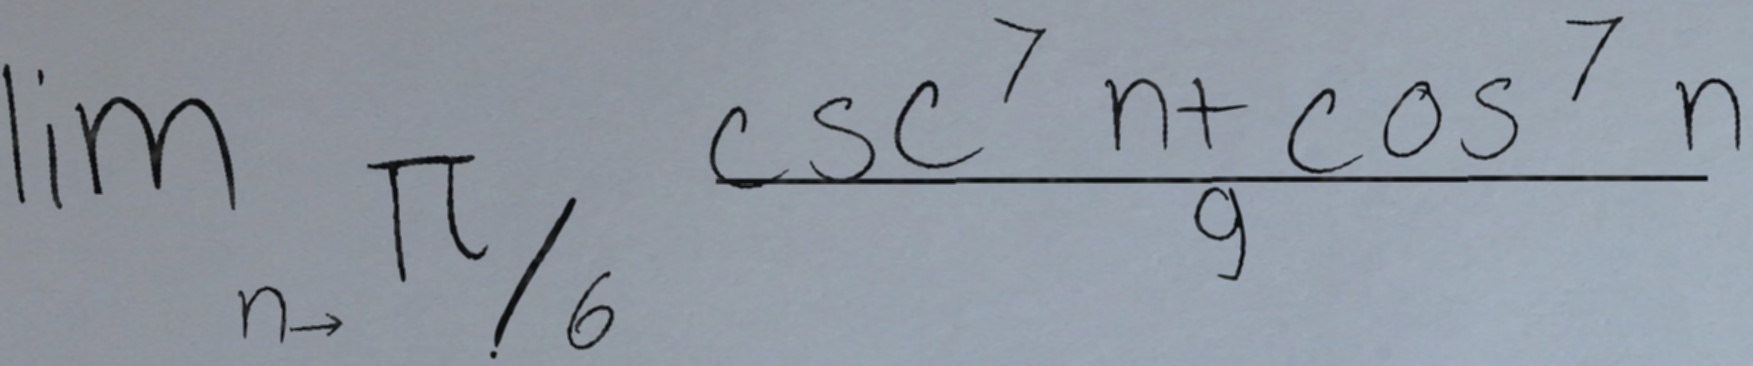 lim n→ π/6 csc⁷ n + cos⁷ n
9